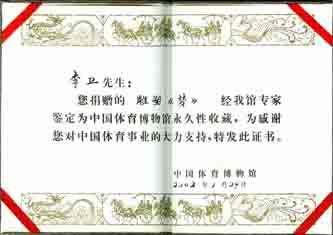 李卫先生：
您捐赠的 雕塑《梦》 经我馆专家
鉴定为中国体育博物馆永久性收藏，为感谢
您对中国体育事业的大力支持，特发此证书。
中国体育博物馆
2002年 月29日